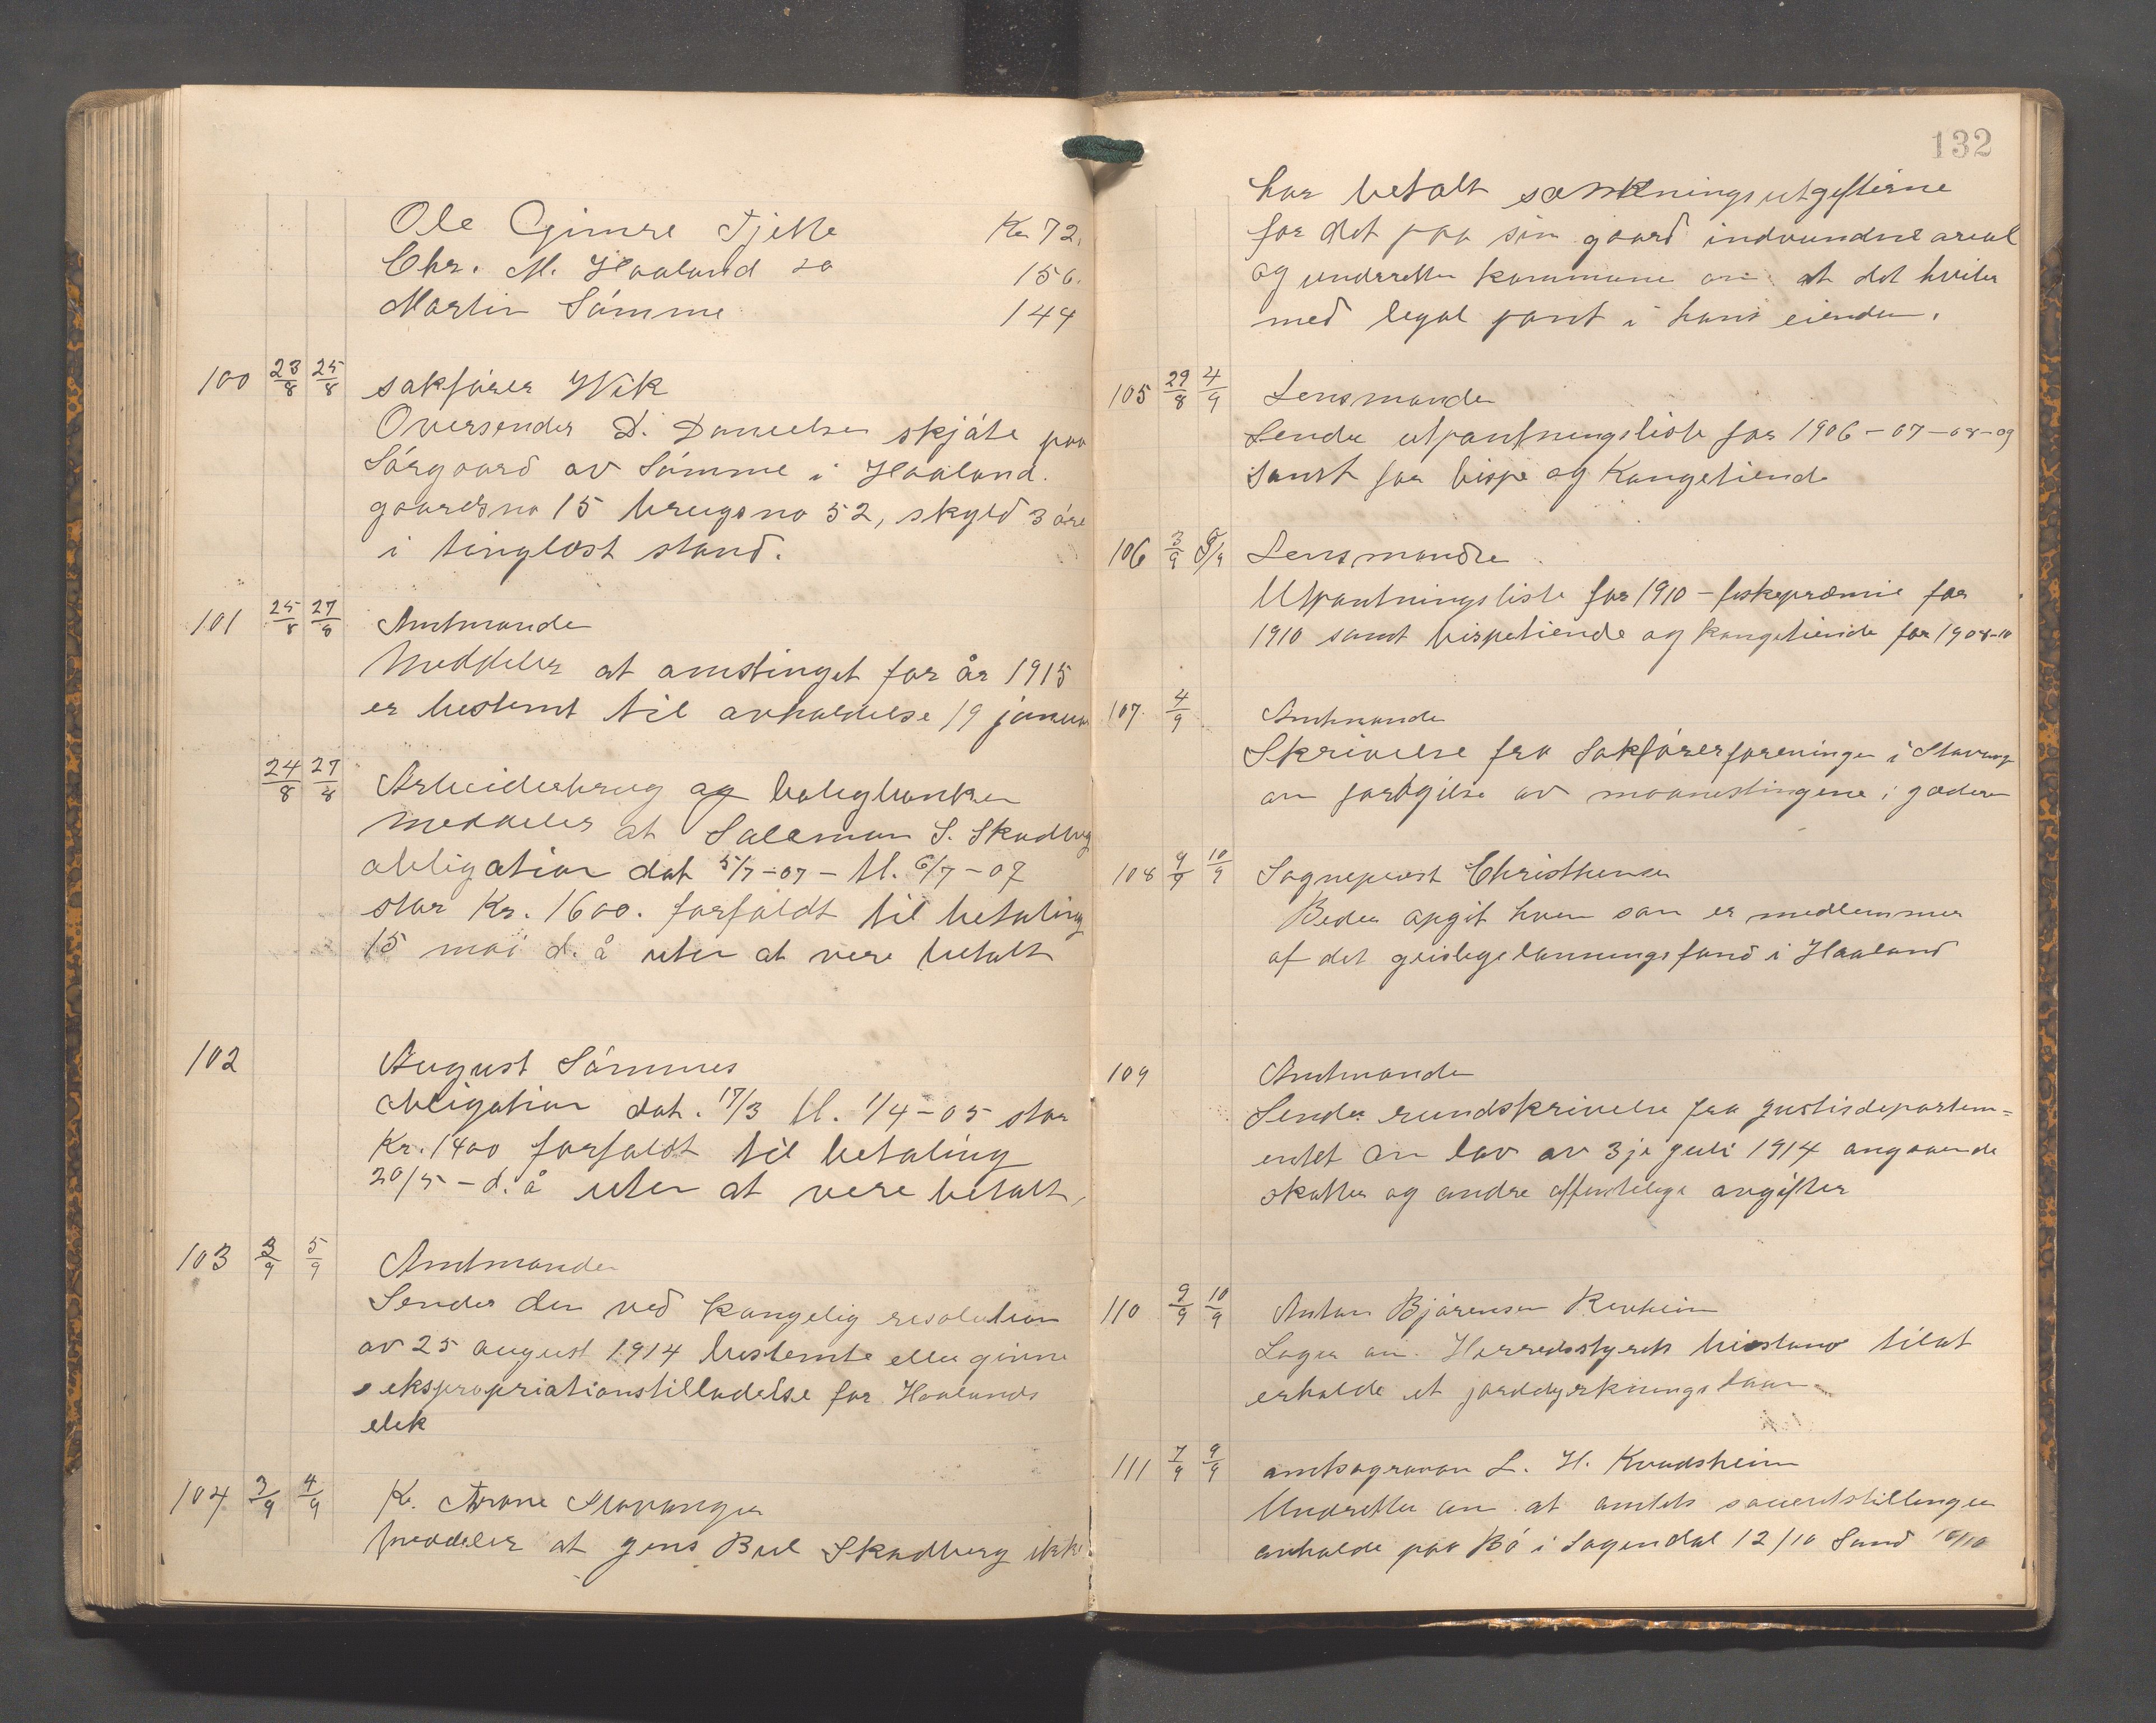 Ole Gimre Tjelte Kr 72.
Chr. M. Haaland so 156.
Martin Sömme 144
100 23/8 25/8 sakförer Wik
Oversender D. Danielsen skjöte paa
Sörgaard av Sömme i Haaland.
gaardsno 15 brugsno 52, skyld 3 öre
i tinglæst stand.
101 25/8 27/8 Amtmanden
Meddeler at amstinget for år 1915
er bestemt til avholdelse 19 januar
24/8 27/8 Arbeiderbrug og boligbanken
meddeler at Salamon S. Skadberg
obligation dat 5/7-07 - tl. 6/7-07
stor Kr. 1600. forfaldt til betaling
15 mai d. å uten at vere betalt
102 August Sömmes
obligation dat. 17/3 tl. 1/4-05 stor
Kr. 1400 forfaldt til betaling
20/5 - d. å uten at vere betalt,
103 3/9 5/9 Amtmanden
Sender den ved kongelig resolution
av 25 august 1914 bestemte
ekspropriationstilladelse for Haalands
elek
104 3/9 4/9 K. Stavanger
meddeler at Jens Bul Skadberg ikke
132
har betalt utgifterne
for det paa sin gaard indvundne areal
og underretter kommune om at det hviler
med legal pant i hans eiendom.
105 29/8 4/9 Lensmanden
Sender utpantningsliste for 1906-07-08-09
samt for bispe og Kongetiende
106 3/9 5/9 Lensmanden
Utpantningsliste for 1910 - fiskepræmie for
1910 samt bispetiende og kongetiende for 1908-10
107. 4/9 Amtmanden
Skrivelse fra Sakförerforeningen i Stavanger
om av maanestingene i Jæderen
108 9/9 10/9 Sogneprest Christhensen
Beder opgit hvem som er medlemmer
af det fond i Haaland
109 Amtmanden
Sender rundskrivelse fra Justisdepartem=
entet om lov av 3je Juli 1914 angaaende
skatter og andre offentlige avgifter
110 9/9 10/9 Anton Björensen Revheim
Søger om Herredsstyrets bistand tilat
erholde et jorddyrkningslaan
111 7/9 9/9 amtsagronom L. H. Kvadsheim
Underetter om at amtets saueutstillinger
avholdes paa Bö i Sogendal 12/10 Sand 10/10